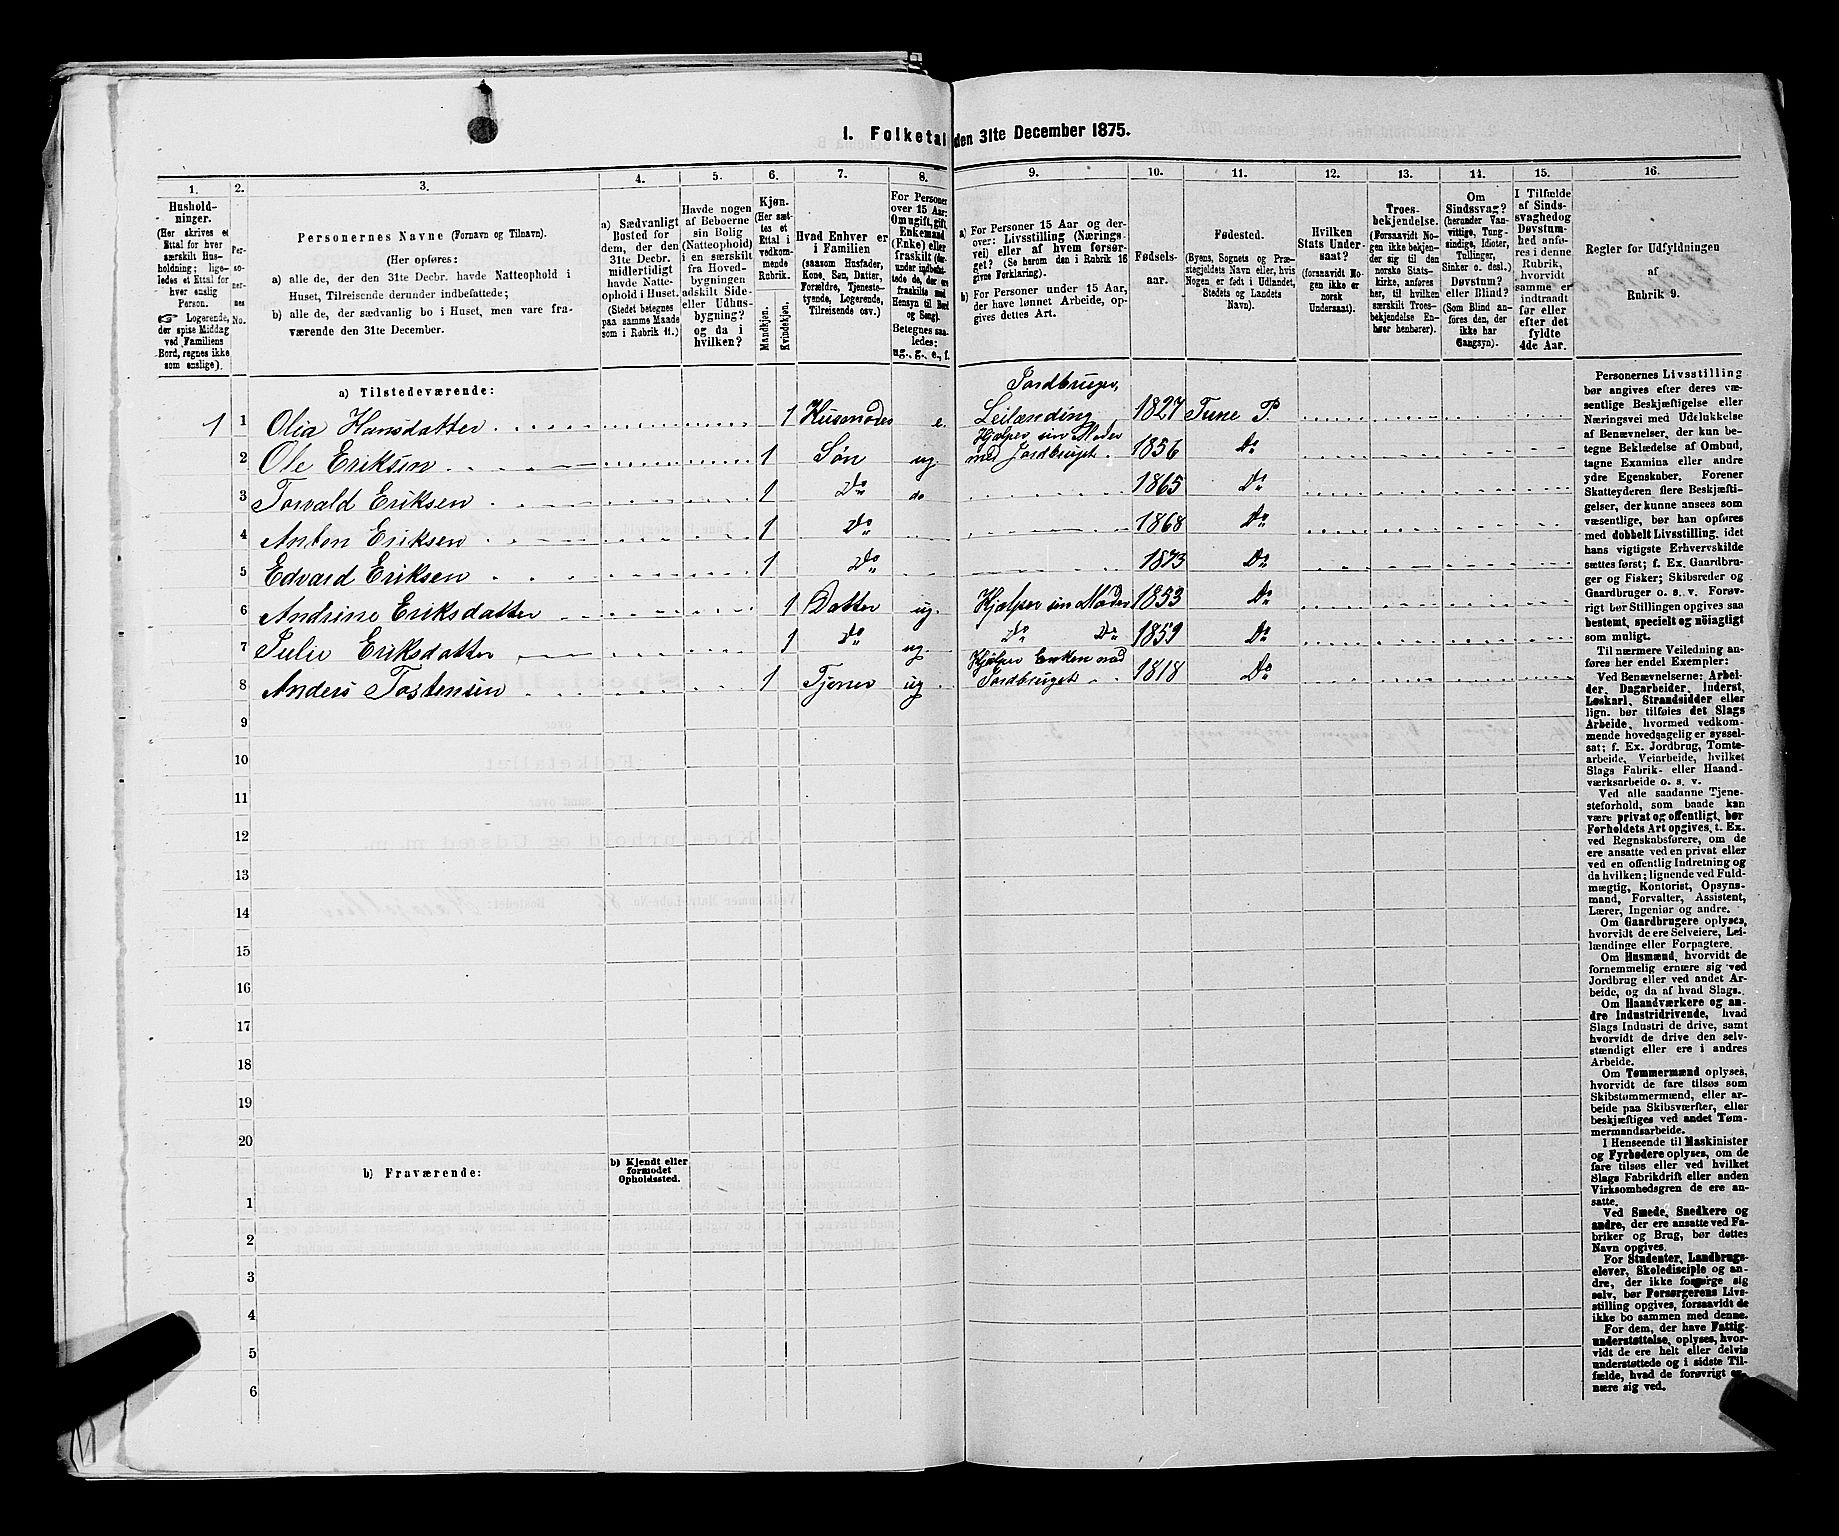 1. Folketal den 31te December 1875.
1. 2. 3. 4. 5. 6. 7. 8. 9. 10. 11. 12. 13. 14. 15. 16.
Hushold-
ninger.
(Her skrives et
Ettal for hver
særskilt Hus-
holdning; lige-
ledes et Ettal for
hver enslig
Person.
☞ Logerende,
der spise Middag
ved Familiens
Bord, regnes ikke
som enslige).
Per-
so-
ner-
nes
No.
Personernes Navne (Fornavn og Tilnavn).
(Her opføres:
a) alle de, der den 31te Decbr. havde Natteophold i
Huset, Tilreisende derunder indbefattede;
b) alle de, der sædvanlig bo i Huset, men vare fra-
værende den 31te December.
a) Sædvanligt
Bosted for
dem, der den
31te Decbr.
midlertidigt
havde Natte-
ophold i Huset.
(Stedet betegnes
paa samme Maade
som i Rubrik 11.)
Havde nogen
af Beboerne
sin Bolig
(Natteophold)
i en særskilt
fra Hoved-
bygningen
adskilt Side-
eller Udhus-
bygning?
og da i
hvilken?
Kjøn.
(Her sæt-
tes et
Ettal i
vedkom-
mende
Rubrik.
Mandkjøn.
Kvindekjøn.
Hvad Enhver er
i Familien
(saasom Husfader,
Kone, Søn, Datter,
Forældre, Tjeneste-
tydende, Logerende,
Tilreisende osv.)
For Personer
over 15 Aar:
Omugift, gift,
Enkemand
(Enke) eller
fraskilt (der-
under indbefat-
tede de, der ere
fraskilte med
Hensyn til Bord
og Seng).
Betegnes saa-
ledes:
ug., g., e., f.
a) For Personer 15 Aar og der-
over: Livsstilling (Nærings-
vei) eller af hvem forsør-
get? (Se herom den i Rubrik 16
givne Forklaring).
b) For Personer under 15 Aar,
der have lønnet Arbeide, op-
gives dettes Art.
Fødsels-
aar.
Fødested.
(Byens, Sognets og Præ-
stegjeldets Navn eller, hvis
Nogen er født i Udlandet,
Stedets og Landets
Navn).
Hvilken
Stats Under-
saat?
(forsaavidt No-
gen ikke er
norsk
Undersaat).
Troes-
bekjendelse.
(Forsaavidt No-
gen ikke bekjen-
der sig til den
norske Stats-
kirke, anføres
her, til hvilken
særskilt Troes-
bekjendelse En-
hver henhører).
Om
Sindssvag?
(herunder Van-
vittige, Tung-
sindige, Idioter,
Tullinger,
Sinker o. desl.)
Døvstum?
eller Blind?
(Som Blind an-
føres den, der
ikke har
Gangsyn).
I Tilfælde
af Sinds-
svaghed og
Døvstum-
hed anfø-
res i denne
Rubrik,
hvorvidt
samme er
indtraadt
før eller
efter det
fyldte
4de Aar.
Regler for Udfyldningen
af
Rubrik 9.
a) Tilstedeværende:
Jordbruger,
1 1 Olia Hansdatter 1 Husmoder e. Leilænding 1827 Tune P.
Hjælper sin Moder
2 Ole Eriksen 1 Søn ug. med Jordbruget. 1856 Do
3 Torvald Eriksen 1 Do do 1865 Do
4 Anton Eriksen 1 Do 1868 Do
5 Edvard Eriksen 1 Do 1873 Do
6 Andrine Eriksdatter 1 Datter ug. Hjælper sin Moder 1853 Do
7 Julie Eriksdatter 1 Do ug. Do Do 1859 Do
Hjælper Enken med
8 Anders Tostensen 1 Tjener ug Jordbruget 1818 Do
9
10
11
12
13
14
15
16
17
18
19
20
b) Fraværende:
b) Kjendt eller
formodet
Opholdssted.
1
2
3
4
5
6
Personernes Livsstilling
bør angives efter deres væ-
sentlige Beskjæftigelse eller
Næringsvei med Udelukkelse
af Benævnelser, der kun be-
tegne Beklædelse af Ombud,
tagne Examina eller andre
ydre Egenskaber. Forener
Skatteyderen flere Beskjæfti-
gelser, der kunne ansees som
væsentlige, bør han opføres
med dobbelt Livsstilling, idet
hans vigtigste Erhvervskilde
sættes først; f. Ex. Gaardbru-
ger og Fisker; Skibsreder og
Gaardbruger o. s. v. Forøv-
rigt bør Stillingen opgives saa
bestemt, specielt og nöiagtigt
som muligt.
Til nærmere Veiledning an-
føres her endel Exempler:
Ved Benævnelserne: Arbei-
der, Dagarbeider, Inderst,
Løskarl, Strandsidder eller
lign. bør tilføies det Slags
Arbeide, hvormed vedkom-
mende hovedsagelig er syssel-
sat; f. Ex. Jordbrug, Tomte-
arbeide, Veiarbeide, hvilket
Slags Fabrik- eller Haand-
værksarbeide o. s. v.
Ved alle saadanne Tjene-
steforhold, som baade kan
være privat og offentligt, bør
Forholdets Art opgives, t. Ex.
ved Regnskabsførere, om de
ere ansatte ved en privat eller
ved en offentlig Indretning og
da hvilken; lignende ved Fuld-
mægtig, Kontorist, Opsyns-
mand, Forvalter, Assistent,
Lærer, Ingeniør og andre.
Om Gaardbrugere oplyses,
hvorvidt de ere Selveiere, Lei-
lændinge eller Forpagtere.
Om Husmænd, hvorvidt de
fornemmelig ernære sig ved
Jordbrug eller ved andet Ar-
beide, og da af hvad Slags.
Om Haandværkere og an-
dre Industridrivende, hvad
Slags Industri de drive, samt
hvorvidt de drive den selv-
stændigt eller ere i andres
Arbeide.
Om Tømmermænd oplyses,
hvorvidt de fare tilsøs som
Skibstømmermænd, eller ar-
beide paa Skibsværfter, eller
beskjæftiges ved andet Tøm-
mermandsarbeide.
I Henseende til Maskinister
og Fyrbødere oplyses, om de
fare tilsøs eller ved hvilket
Slags Fabrikdrift eller anden
Virksomhedsgren de ere an-
satte.
Ved Smede, Snedkere og
andre, der ere ansatte ved Fa-
briker og Brug, bør dettes
Navn opgives.
For Studenter, Landbrugs-
elever, Skoledisciple og an-
dre, der ikke forsørge sig
selv, bør Forsørgerens Livs-
stilling opgives, forsaavidt de
ikke bo sammen med denne.
For dem, der have Fattig-
understøttelse, oplyses, hvor-
vidt de ere helt eller delvis
understøttede og i sidste Til-
fælde, hvad de forøvrigt er-
nære sig ved.